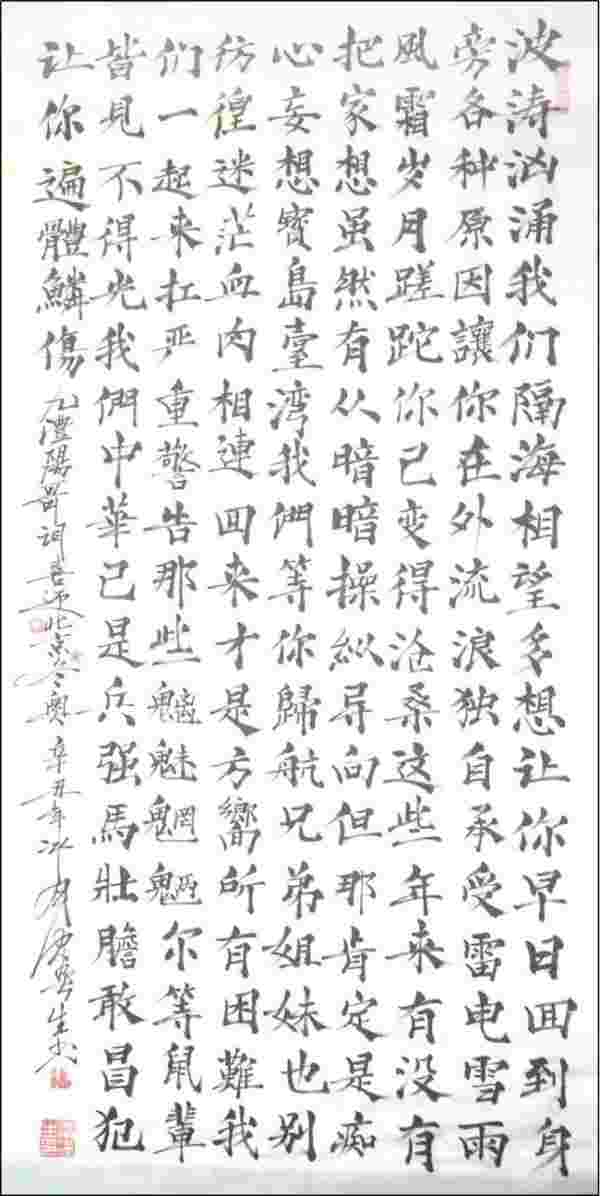 波涛汹涌我们隔海相望多想让你早日回到身
旁各种原因讓你在外流浪独自承受雷电雪雨
风霜岁月蹉跎你已变得沧桑这些年来有没有
把家想虽然有人暗暗操纵导向但那肯定是痴
心妄想寳島臺湾我们等你歸航兄弟姐妹也别
彷徨迷茫血肉相連回来才是方嚮所有困難我
们一起来扛严重警告那些魑魅魍魉尔等鼠輩
皆見不得光我們中華已是兵强馬壯膽敢冒犯
让你遍體鱗傷
九澧陽哥词喜迎北京冬奥辛丑年